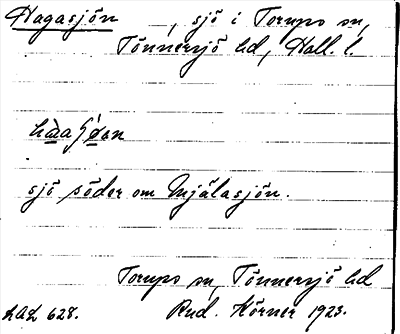 Hagasjön , sjö i Torups sn,
Tönnersjö hd, Hall. l.
sjö söder om Mjälasjön.
Torups sn, Tönnersjö hd
LAL 628. Rud. Hörner 1923.